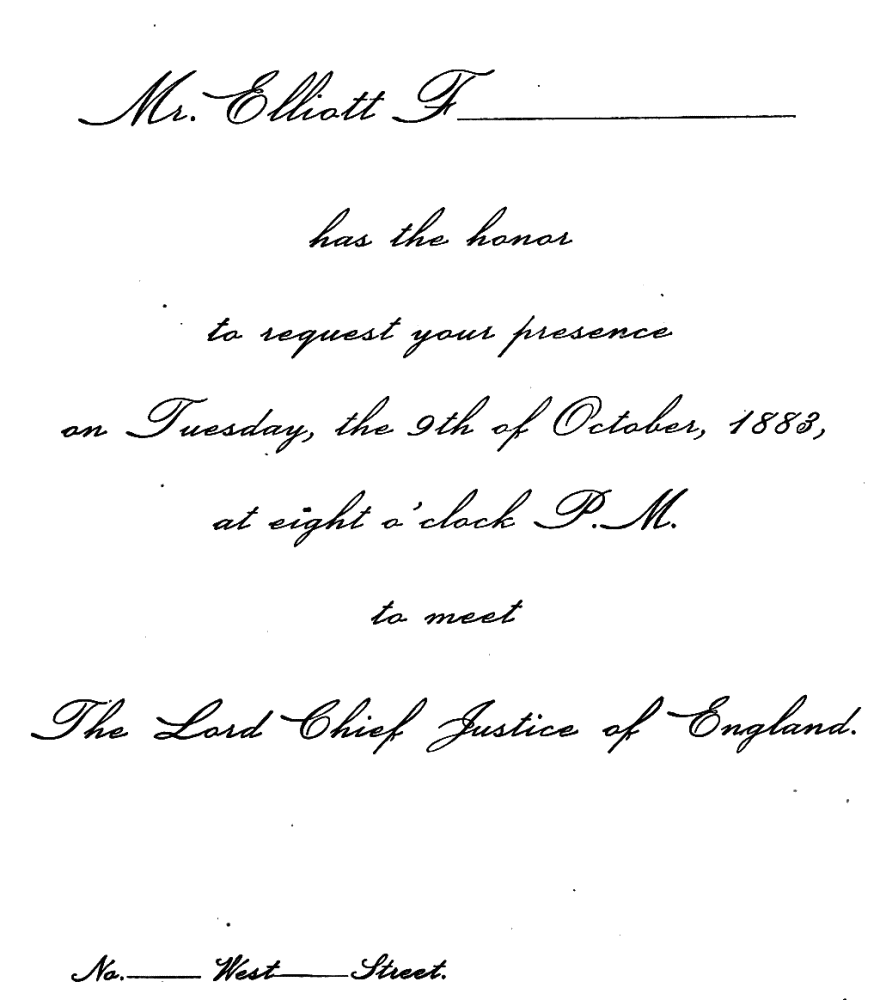 Mr. Elliott F______
has the honor
to request your presence
on Tuesday, the 9th of October, 1883,
at eight o'clock P.M.
to meet
The Lord Chief Justice of England.
No.____ West____ Street.